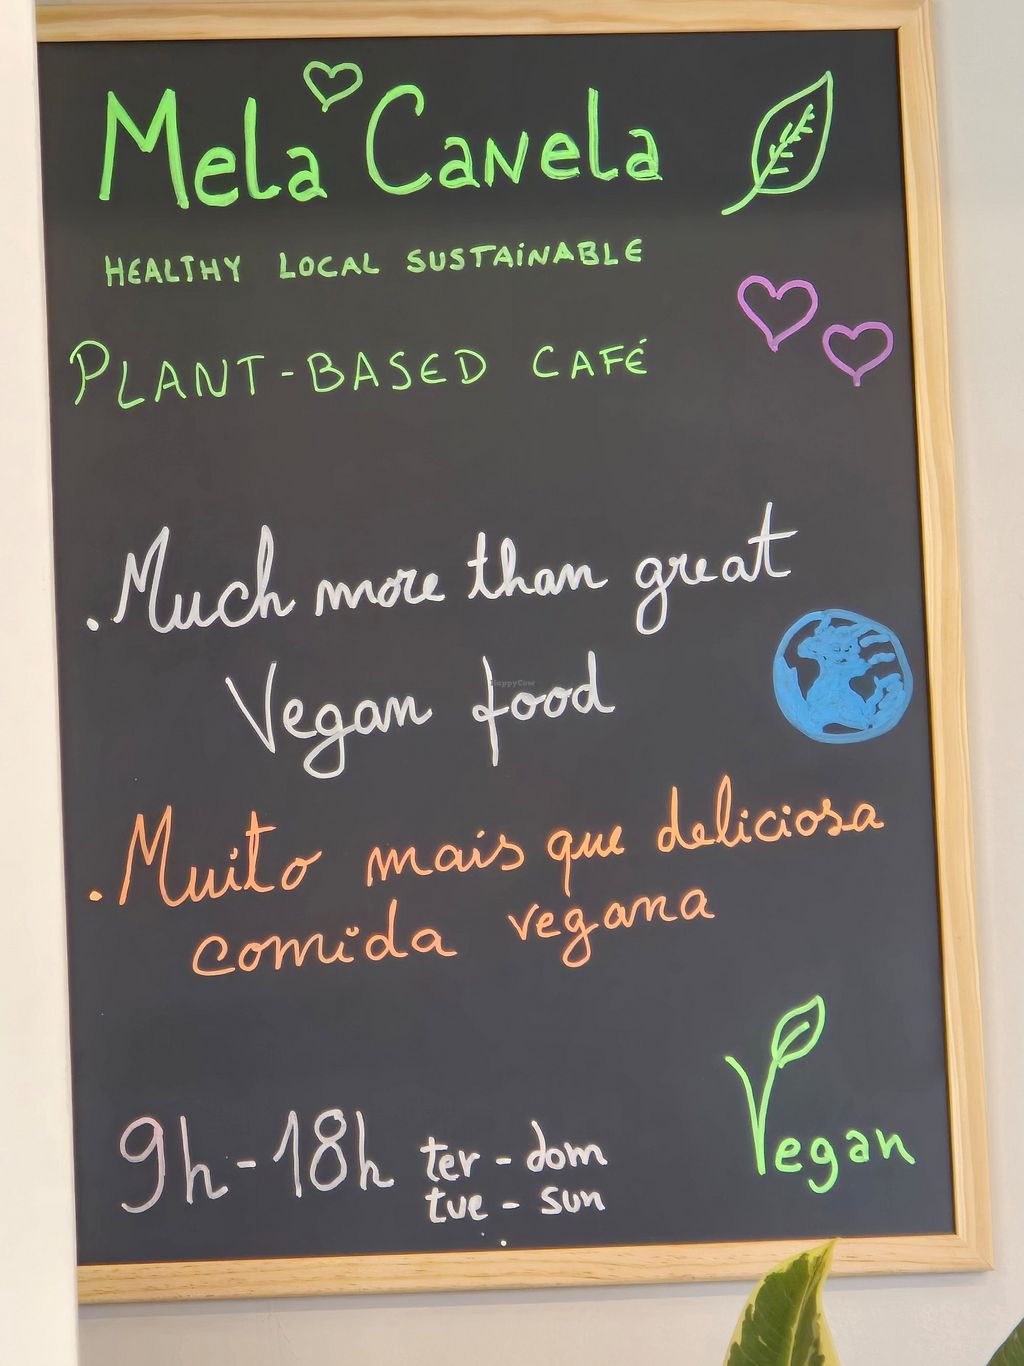 Mela Canela
HEALTHY LOCAL SUSTAINABLE
PLANT-BASED CAFÉ
. Much more than great
Vegan food
HappyCow
. Muito mais que deliciosa
comida vegana
9h - 18h ter - dom
tue - sun
Vegan